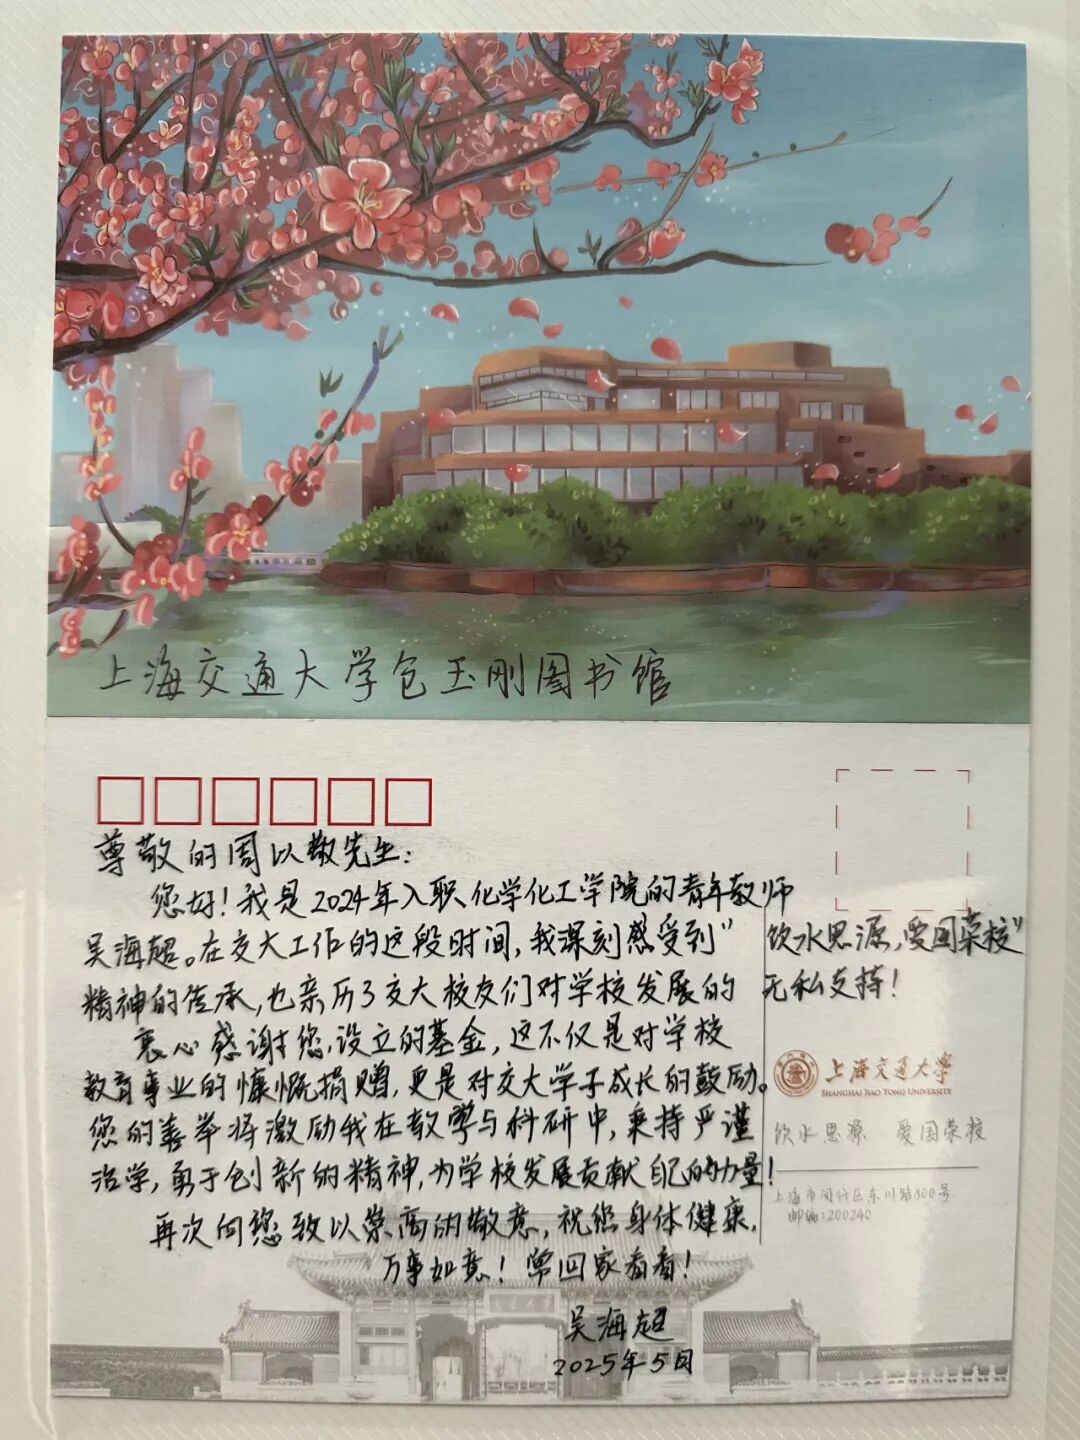 上海交通大学包玉刚图书馆
尊敬的周以敬先生:
您好!我是2024年入职化学化工学院的青年教师
吴海超。在交大工作的这段时间,我深刻感受到"饮水思源,爱国荣校"
精神的传承,也亲历了交大校友们对学校发展的无私支持!
衷心感谢您设立的基金,这不仅是对学校
教育事业的慷慨捐赠,更是对交大学子成长的鼓励。
您的善举将激励我在教学与科研中,秉持严谨
治学,勇于创新的精神,为学校发展贡献自己的力量!
再次向您致以崇高的敬意,祝您身体健康,
万事如意!常回家看看!
吴海超
2025年5月
上海交通大学
SHANGHAI JIAO TONG UNIVERSITY
饮水思源 爱国荣校
上海市闵行区东川路800号
邮编:200240